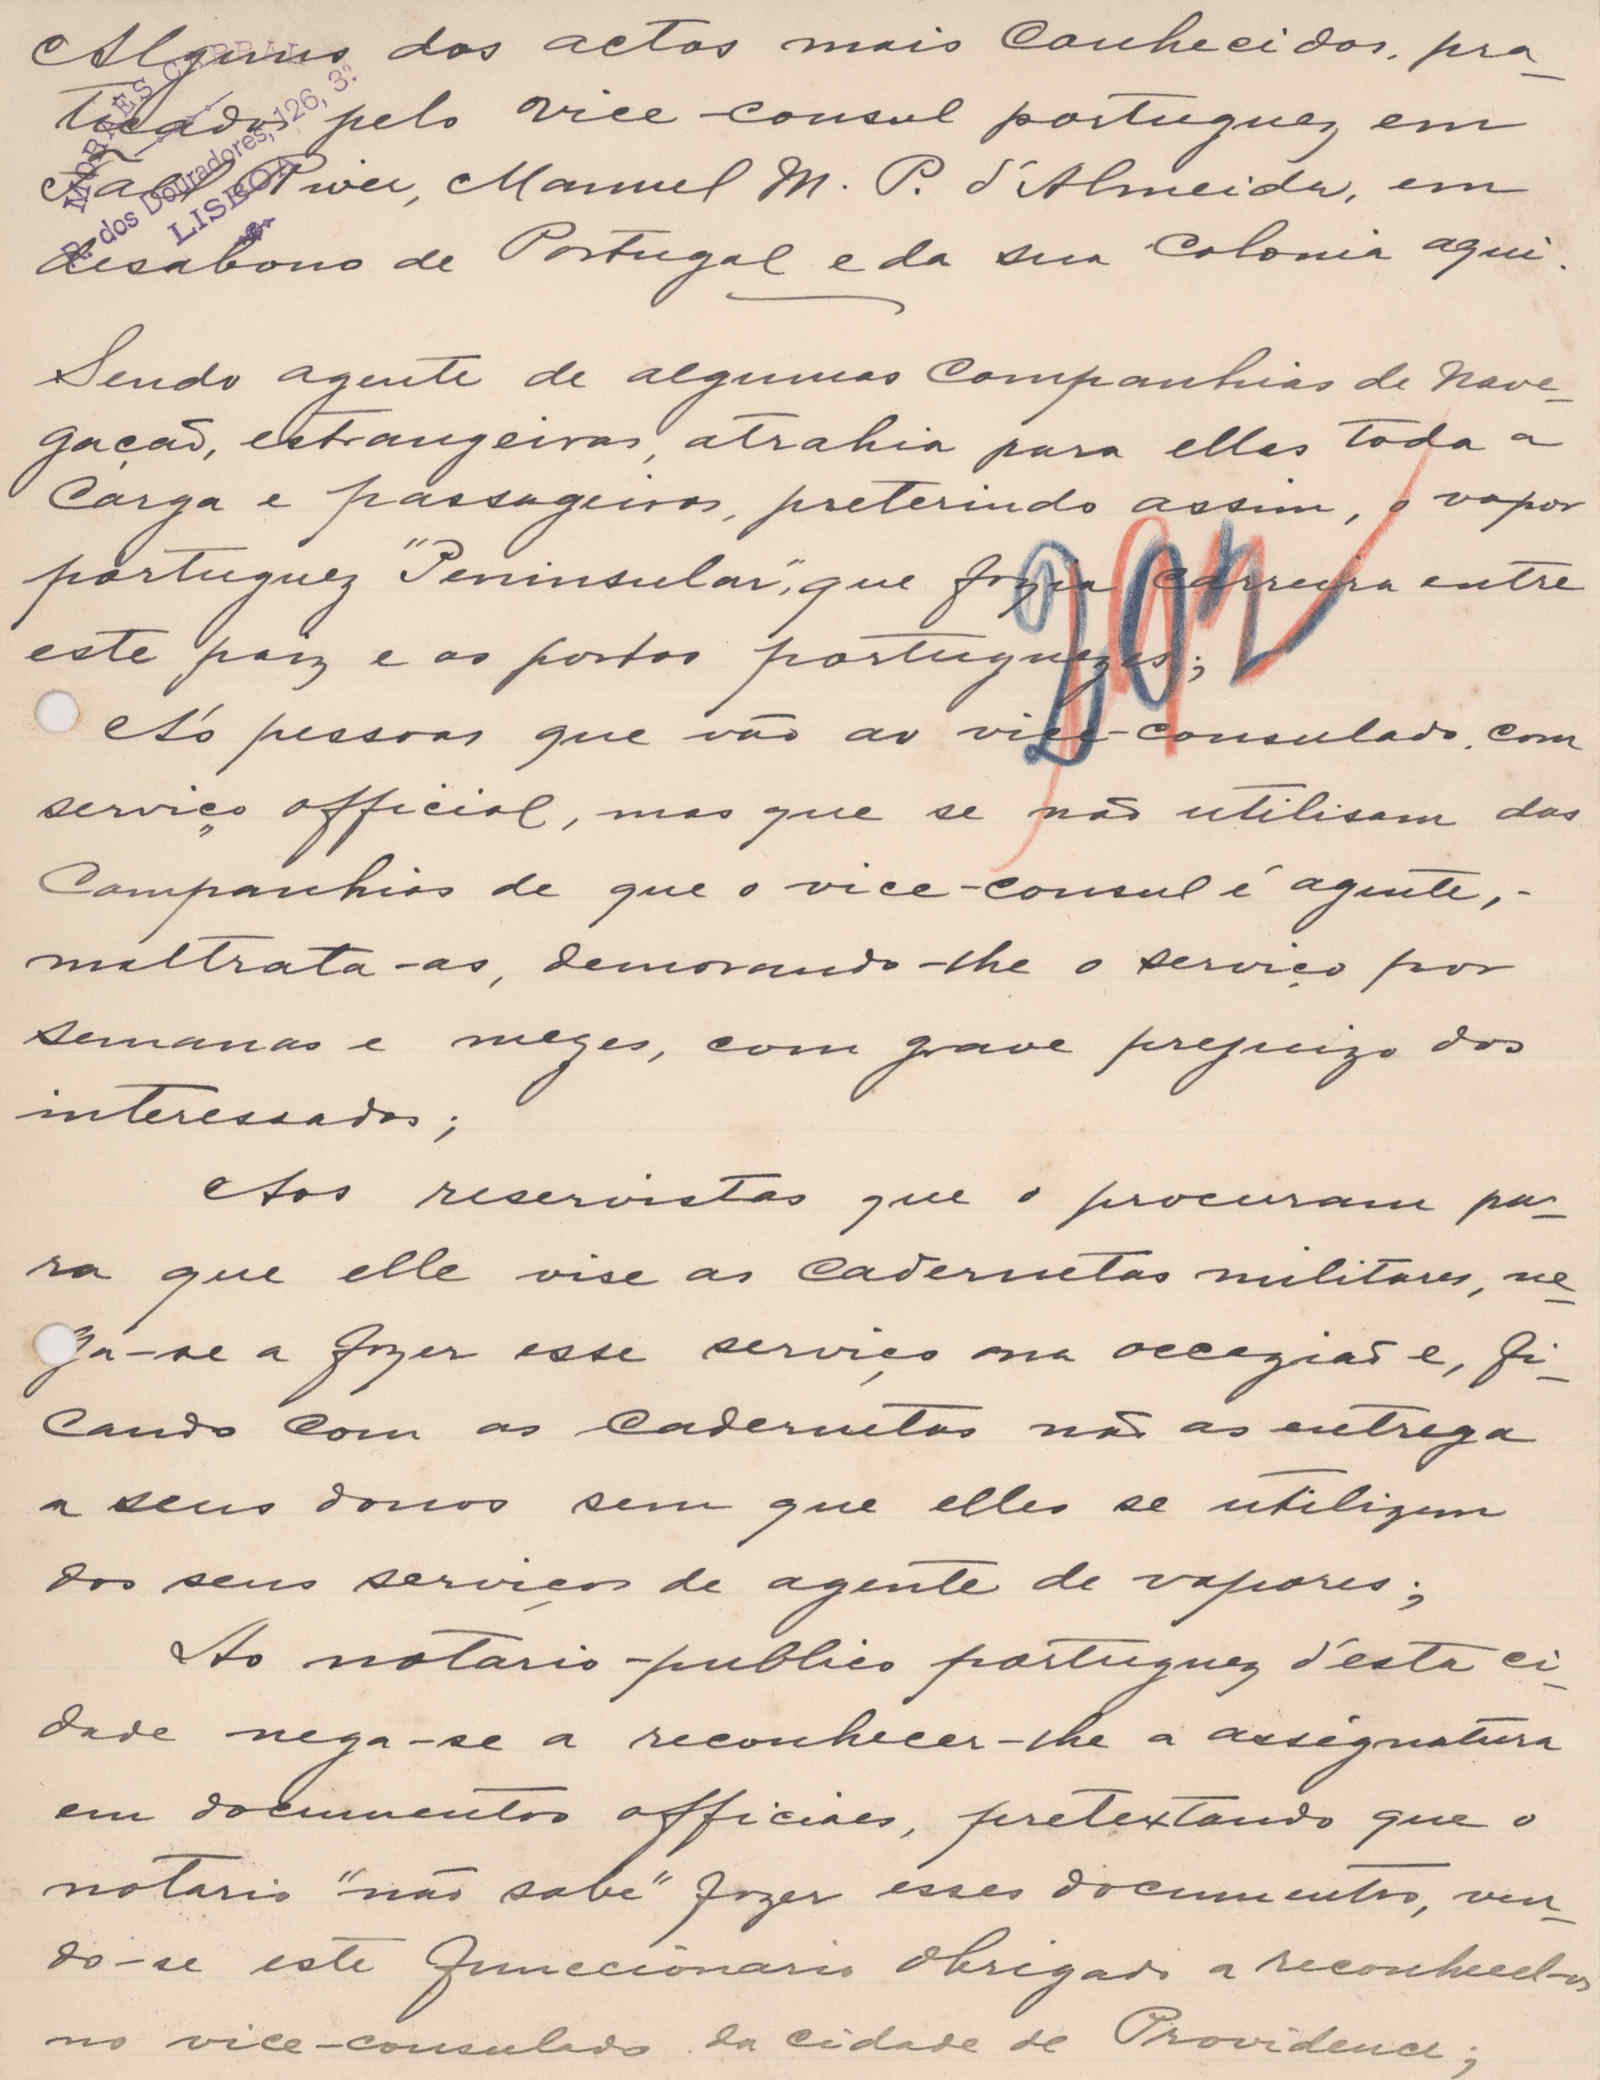 Alguns dos actos mais conhecidos, pra-
ticados pelo vice-consul portuguez em
Fall River, Manuel M. P. d'Almeida, em
desabono de Portugal e da sua colonia aqui.
MORAES CABRAL
R. dos Douradores, 126, 3º
LISBOA
Sendo agente de algumas companhias de nave-
gação, estrangeiras, atrahia para ellas toda a
carga e passageiros, preterindo assim, o vapor
portuguez "Peninsular", que fazia carreira entre
este paiz e os portos portuguezes;
Ás pessoas que vão ao vice-consulado, com
serviço official, mas que se não utilisam das
Companhias de que o vice-consul é agente,-
maltrata-as, demorando-lhe o serviço por
semanas e mezes, com grave prejuizo dos
interessados;
Aos reservistas que o procuram pa-
ra que elle vise as cadernetas militares, ne-
ga-se a fazer esse serviço na occazião e, fi-
cando com as cadernetas não as entrega
a seus donos sem que elles se utilizem
dos seus serviços de agente de vapores;
Ao notario-publico portuguez d'esta ci-
dade nega-se a reconhecer-lhe a assignatura
em documentos officiaes, pretextando que o
notario "não sabe" fazer esses documentos, ven-
do-se este funccionario obrigado a reconhecel-os
no vice-consulado da cidade de Providence;